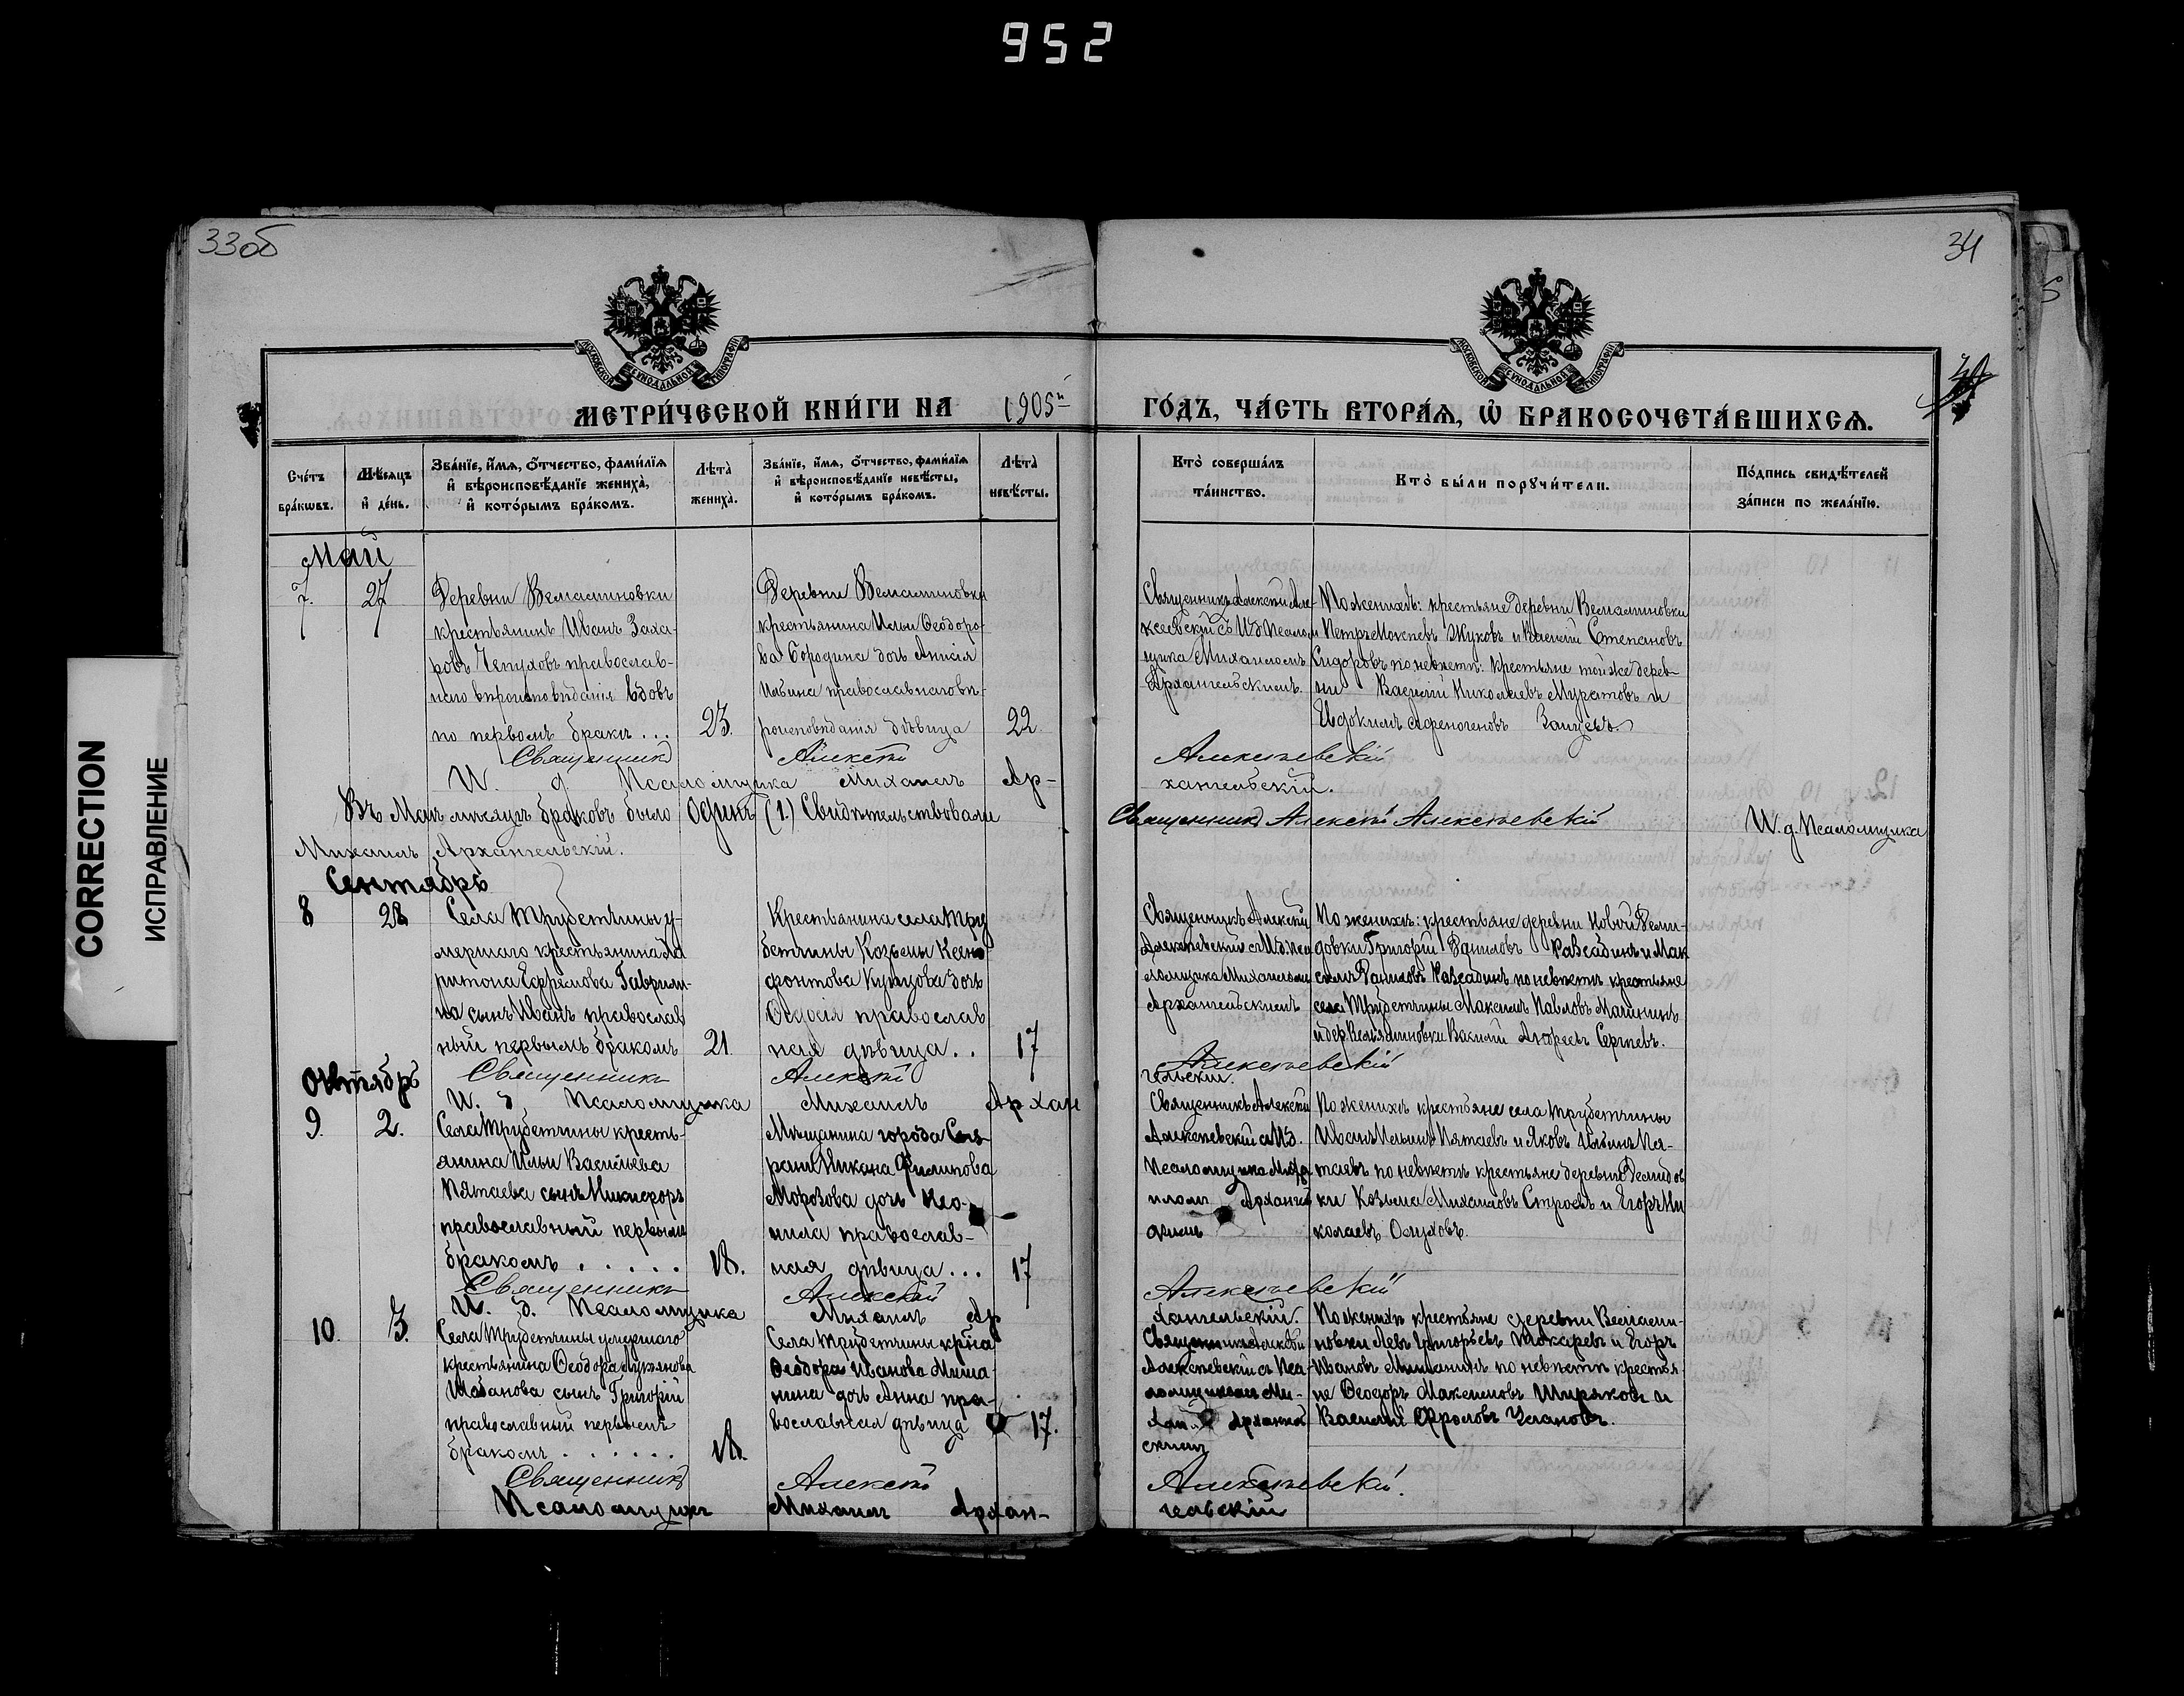 952
33об
34
CORRECTION
ИСПРАВЛЕНИЕ
МОСКОВСКОЙ СѴНОДАЛЬНОЙ ТИПОГРАФІИ
МОСКОВСКОЙ СѴНОДАЛЬНОЙ ТИПОГРАФІИ
МЕТРИ́ЧЕСКОЙ КНИ́ГИ НА 1905й
ГО́ДЪ, ЧА́СТЬ ВТОРА́Ѧ, Ѽ БРАКОСОЧЕТА́ВШИХСѦ.
Сче́тъ бра́кѡвъ.
Мѣ́сяцъ и҆ де́нь.
Зва́нїе, и҆́мѧ, ѻ҆́тчество, фами́лїѧ и҆ вѣроисповѣ́данїе жениха̀, и҆ кото́рымъ бра́комъ.
Лѣта̀ жениха̀.
Зва́нїе, и҆́мѧ, ѻ҆́тчество, фами́лїѧ и҆ вѣроисповѣ́данїе невѣ́сты, и҆ кото́рымъ бра́комъ.
Лѣта̀ невѣ́сты.
Кто̀ соверша́лъ та́инство.
Кто̀ бы́ли порꙋчи́тели.
По́дпись свидѣ́телей за́писи по жела́нїю.
Май
7.
27
Деревни Вельяминовки
крестьянинъ Иванъ Заха-
ровъ Чепуховъ православ-
наго вѣроисповѣданія вдовъ
по первомъ бракѣ ...
23.
Деревни Вельяминовки
крестьянина Ильи Ѳеодоро-
ва Бородина дочь Анисія
Ильина православнаго вѣ-
роисповѣданія дѣвица
22
Священникъ Алексій Але-
ксѣевскій съ И.д. псалом
щика Михаиломъ
Архангельскимъ.
По женихѣ: крестьяне деревни Вельяминовки
Петръ Мокѣевъ Жуковъ и Василій Степановъ
Сидоровъ по невѣстѣ: крестьяне той же дерев-
ни Василій Николаевъ Муратовъ и
Евдокимъ Афеногеновъ Зайцевъ.
Священникъ Алексѣй Алексѣевскій
И. д. Псаломщика Михаилъ Ар-
хангельскій.
Въ Маѣ мѣсяцѣ браковъ было Одинъ (1.) Свидѣтельствовали
Священникъ Алексѣй Алексѣевскій И. д. Псаломщика
Михаилъ Архангельскій.
Сентябрь
8
28
Села Трубетчины у-
мершаго крестьянина Ха
ритона Ефремова Гаврили-
на сынъ Иванъ православ
ный первымъ бракомъ
21.
Крестьянина села Тру
бетчины Козьмы Ксено
фонтова Купцова дочь
Ѳедосія православ
ная дѣвица..
17
Священникъ Алексѣй
Алексѣевскій съ И.д. пса
ломщика Михаиломъ
Архангельскимъ
По женихѣ: крестьяне деревни Новой Деми-
довки Григорій Даниловъ Разсадинъ и Мак
симъ Даниловъ Разсадинъ по невѣстѣ крестьяне
села Трубетчины Максимъ Павловъ Малининъ
и дер. Вельяминовки Василій Андреевъ Сергѣевъ.
Священникъ Алексѣй Алексѣевскій
И. д. Псаломщика Михаилъ Архан
гельскій.
Октябрь
9.
2.
Села Трубетчины кресть-
янина Ильи Васильева
Пятаева сынъ Никифоръ
православный первымъ
бракомъ .....
18.
Мѣщанина города
Никана Филипова
Морозова дочь Нео-
нила православ-
ная дѣвица...
17
Священникъ Алексѣй
Алексѣевскій съ И.д.
Псаломщика Миха
иломъ Архангель
скимъ
По женихѣ крестьяне села Трубетчины
Иванъ Ильинъ Пятаевъ и Яковъ Ильинъ Пя-
таевъ по невѣстѣ крестьяне деревни Демидов
ки Козьма Михаиловъ Строевъ и Егоръ Ни
колаевъ
Священникъ Алексѣй Алексѣевскій
И. д. Псаломщика Михаилъ Ар
хангельскій.
10.
3.
Села Трубетчины умершаго
крестьянина Ѳеодора Лукьянова
Шабанова сынъ Григорій
православный первымъ
бракомъ ......
18.
Села Трубетчины кр-на
Ѳеодора Иванова Миша-
нина дочь Анна пра-
вославная дѣвица
17.
Священникъ Алексѣй
Алексѣевскій съ Пса-
ломщикомъ Ми-
хаил Архангель
скимъ
По женихѣ крестьяне деревни Вельями-
новки Левъ Григорьевъ Токаревъ и Егоръ
Ивановъ Мишанинъ по невѣстѣ крестья-
не Ѳеодоръ Максимовъ Ширяковъ и
Василій Фроловъ Улановъ.
Священникъ Алексѣй Алексѣевскій.
Псаломщикъ Михаилъ Архан-
гельскій